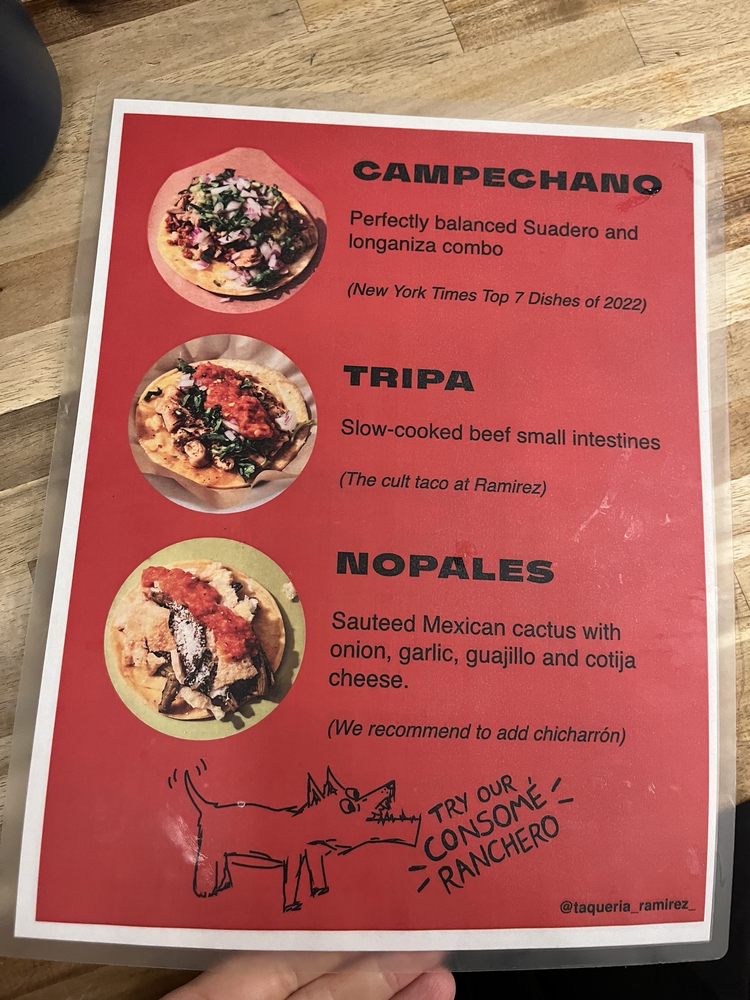 CAMPECHANO
Perfectly balanced Suadero and
longaniza combo
(New York Times Top 7 Dishes of 2022)
TRIPA
Slow-cooked beef small intestines
(The cult taco at Ramirez)
NOPALES
Sauteed Mexican cactus with
onion, garlic, guajillo and cotija
cheese.
(We recommend to add chicharrón)
TRY OUR
CONSOMÉ
RANCHERO
@taqueria_ramirez_